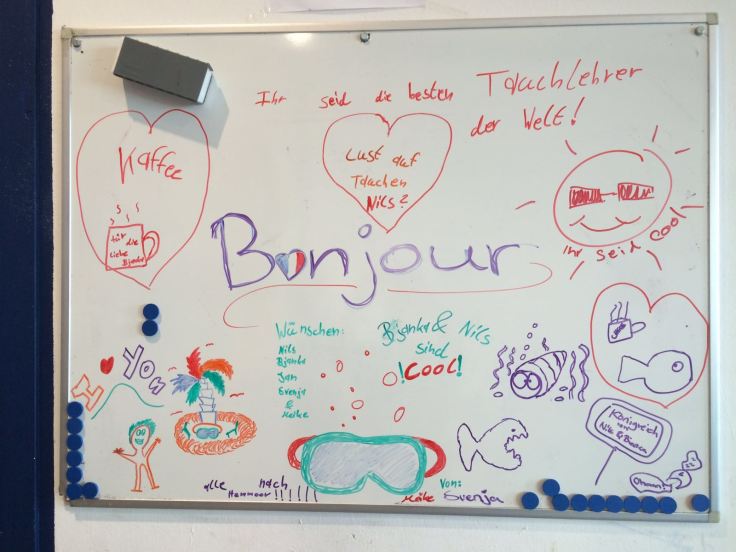 Ihr seid die besten Tauchlehrer
der Welt!
Kaffee
für die
liebe Bjanka
Lust auf
Tauchen
Nils?
Ihr seid cool
Bonjour
I ♥ You
Wünschen:
Nils
Bjanka
Jan
Svenja
&
Heike
Bjanka & Nils
sind
!COOL!
Königreich
von
Nils & Bianca
alle nach
Hemmoor!!!!!!
Von:
Heike Svenja